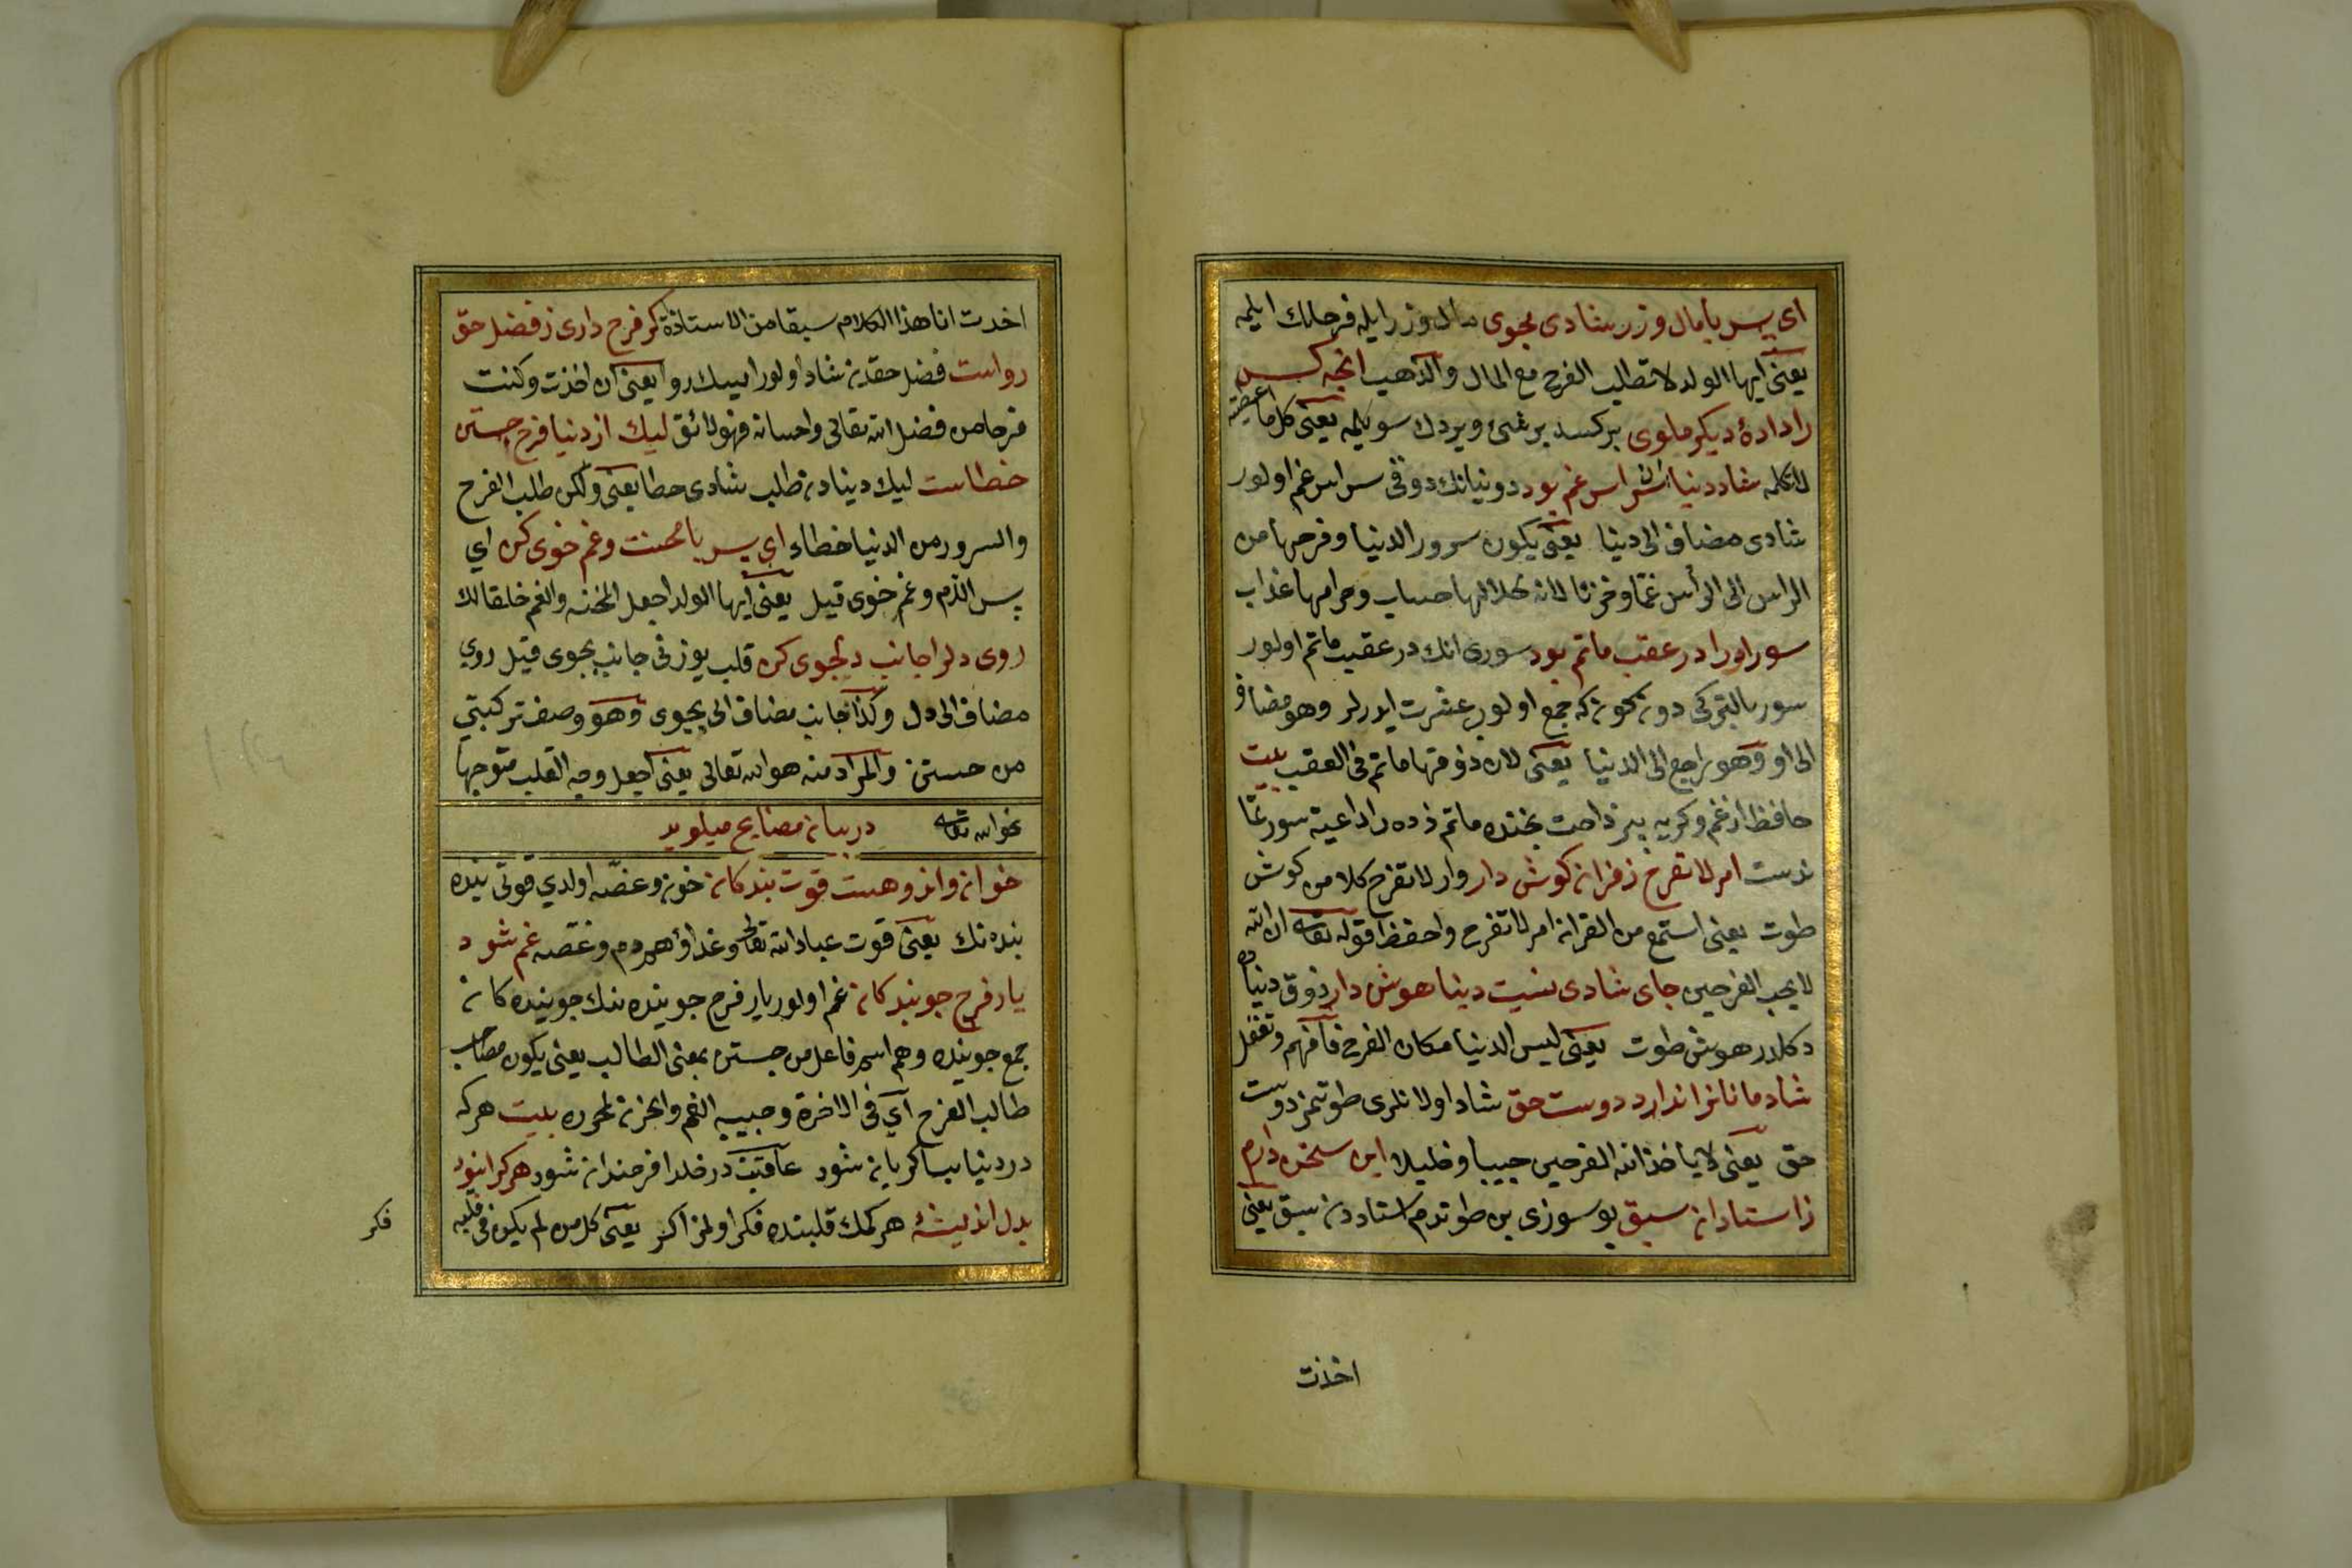 ای پسر با مال و زر شادی مجوی مال و زر ایله فرحلك ایلمه
یعنی ایها الولد لا تطلب الفرح مع المال والذهب انچه کس
را دادهٔ دیکر ملوی برکسه بر شئ ویردك سویلمه یعنی کل ما اعطیته
لا تکلمه شاد دنیا سراسر غم بود دونیانك ذوقی سراسر غم اولور
شادی مضاف الی دنیا یعنی یکون سرور الدنیا و فرحها من
الراس الی الرأس غما و حزنا لانه حلالها حساب و حرامها عذاب
سور اورا در عقب ماتم بود سوری انك در عقب ماتم اولور
سور بالترکی دون کون که جمع اولوب عشرت ایدرلر وهو مضاف
الی او وهو راجع الی الدنیا یعنی لان ذوقها ماتم فی العقب بیت
حافظ از غم و کریه
ماتم زده را داعیهٔ سور نما
ندست امر لا تفرح ز قران کوش دار وار لا تفرح کلامن کوش
طوت یعنی استمع من القران امر لا تفرح واحفظ قوله تعالی ان الله
لا یحب الفرحین جای شادی نیست دنیا هوش دار ذوق دنیاده
دکلدر هوش طوت یعنی لیس الدنیا مکان الفرح فافهم و تعقل
شادمانانرا ندارد دوست حق شاد اولانلری طوتمز دوست
حق یعنی لا یأخذ الله الفرحین حبیبا و خلیلا این سخن دارم
ز استادان سبق بو سوزی بن طوتدم استاددن سبق یعنی
اخذت
اخدت انا هذا الکلام سبقا من الاستاذة کر فرح داری ز فضل حق
رواست فضل حقدن شاد اولور ایسك روا یعنی ان اخذت وکنت
فرحا من فضل الله تعالی واحسانه فهو لائق لیك از دنیا فرح جستن
خطاست لیك دینادن طلب شادی خطا یعنی ولکن طلب الفرح
والسرور من الدنیا خطاء ای پسر با محنت و غم خوی کن ای
پسر الدم و غم خوی قیل یعنی ایها الولد اجعل المحنه والغم خلقا لك
روی دلرا جانب دلجوی کن قلب یوزنی جانب بجوی قیل روی
مضاف الی دل وکذا جانب مضاف الی بجوی وهو وصف ترکیبی
من جستن والمراد منه هو الله تعالی یعنی اجعل وجه القلب متوجها
نحو الله تعالی در بیان مصنایع میلوید
خوان و اندوهست قوت بندکان خون و غصّه اولدی قوتی بنده
بنده نك یعنی قوت عباد الله تعالی و غداؤهم دم و غصه غم شود
یار فرح جویندکان غم اولور یار فرح جوینده نك جوینده کان
جمع جوینده وهم اسم فاعل من جستن بمعنی الطالب یعنی یکون مصاحب
طالب الفرح ای فی الاخرة و حبیبه الغم والحزن لمحرره بیت هرکه
در دنیا بسا کریان شود عاقبت در خلد فرخندان شود هرکرا نبود
بدل اندیشهٔ هر کمك قلبنده فکر اولمز اکر یعنی کل من لم یکون فی قلبه
فکر